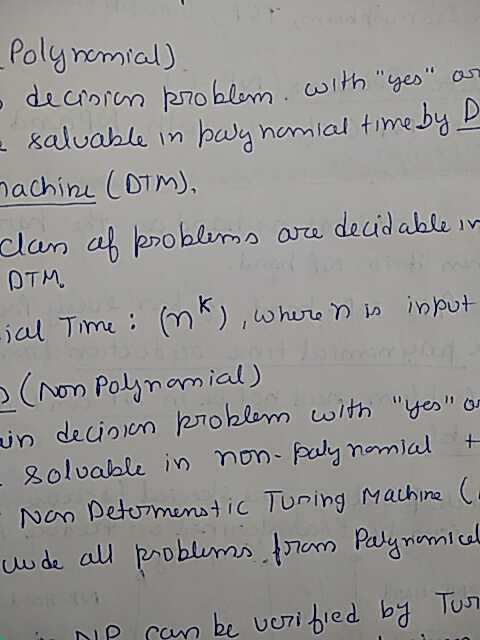 Polynomial)
decision problem. with "yes" or
saluable in polynomial time by D
machine (DTM).
class of problems are decidable in
DTM.
ial Time : (n^k), where n is input
(Non Polynomial)
in decision problem with "yes" o
Soluable in non-polynomial t
Non Determenstic Turing Machine (
ude all problems from Polynomial
NP can be verified by Tur